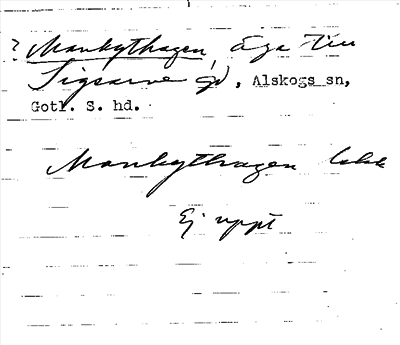 ? Mankythagen, Äga till
Sigsarve gd, Alskogs sn,
Gotl. S. hd.
Mankythagen
Ej uppt